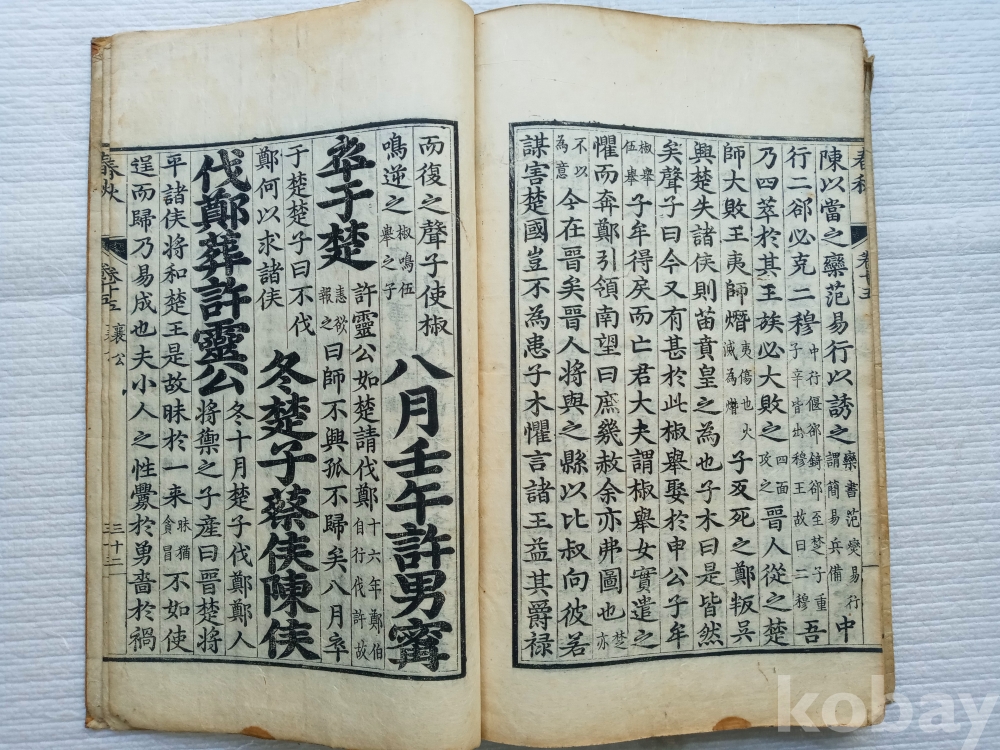 春秋 卷十五
陳以當之欒范易行以誘之欒書范燮易行謂簡易兵備中
行二郤必克二穆中行偃郤錡郤至楚子重子辛皆出穆王故曰二穆吾
乃四萃於其王族必大敗之四面攻之晉人從之楚
師大敗王夷師熸夷傷也火滅為熸子反死之鄭叛吳
興楚失諸侯則苗賁皇之為也子木曰是皆然
矣聲子曰今又有甚於此椒舉娶於申公子牟
椒舉伍舉子牟得戾而亡君大夫謂椒舉女實遣之
懼而奔鄭引領南望曰庶幾赦余亦弗圖也楚亦
不以為意今在晉矣晉人將與之縣以比叔向彼若
謀害楚國豈不為患子木懼言諸王益其爵祿
而復之聲子使椒
鳴逆之椒鳴伍舉之子
八月壬午許男甯
卒于楚
許靈公如楚請伐鄭十六年鄭伯自行伐許故
恚欲報之曰師不興孤不歸矣八月卒
于楚楚子曰不伐
鄭何以求諸侯
冬楚子蔡侯陳侯
伐鄭葬許靈公
冬十月楚子伐鄭鄭人
將禦之子產曰晉楚將
平諸侯將和楚王是故昧於一来昧猶貪冒不如使
逞而歸乃易成也夫小人之性釁於勇嗇於禍
春秋 卷十五 襄公 三十二
kobay